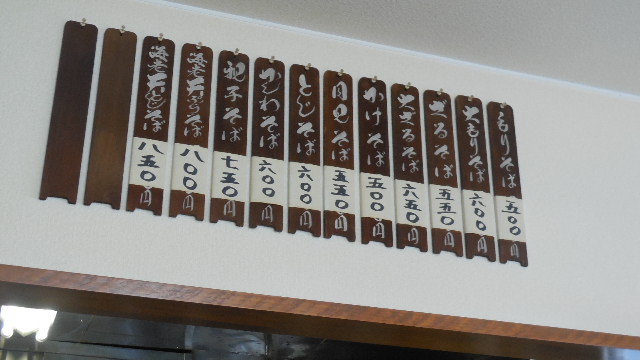 もりそば 五〇〇円
大もりそば 六〇〇円
ざるそば 五五〇円
大ざるそば 六五〇円
かけそば 五〇〇円
月見そば 五五〇円
とじそば 六〇〇円
かしわそば 六〇〇円
親子そば 七五〇円
海老天ぷらそば 八〇〇円
海老天とじそば 八五〇円